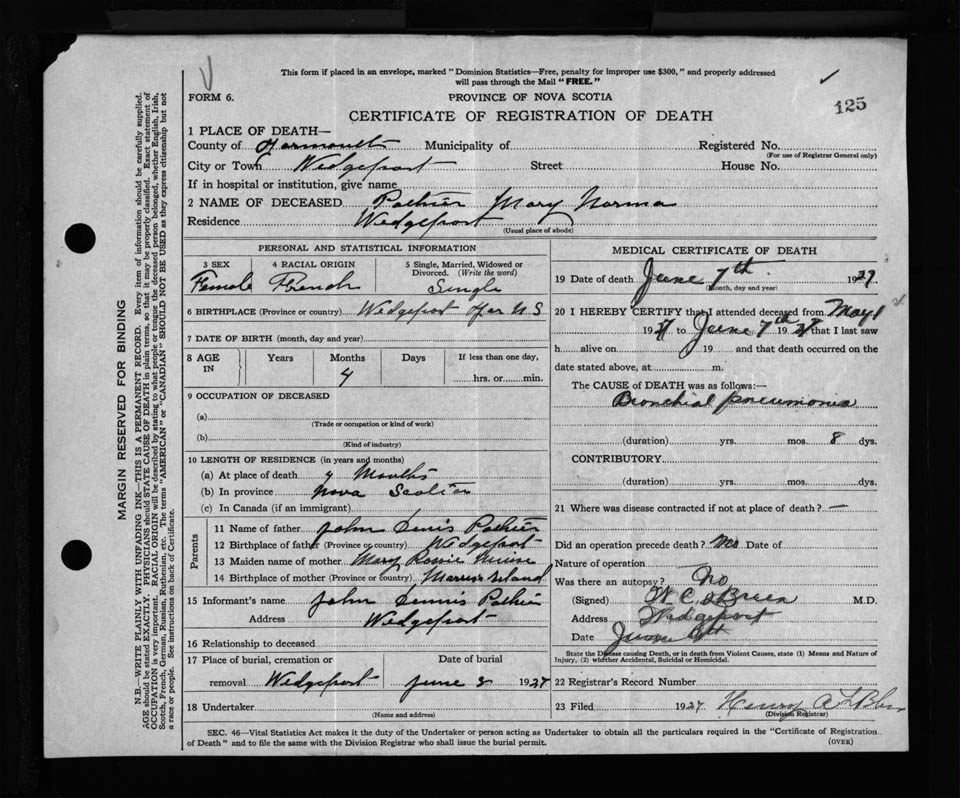 This form if placed in an envelope, marked "Dominion Statistics—Free, penalty for improper use $300," and properly addressed
will pass through the Mail "FREE."
FORM 6.
PROVINCE OF NOVA SCOTIA
125
CERTIFICATE OF REGISTRATION OF DEATH
1 PLACE OF DEATH—
County of Yarmouth Municipality of Registered No.
(For use of Registrar General only)
City or Town Wedgeport Street House No.
If in hospital or institution, give name
2 NAME OF DECEASED Pothier Mary Norma
Residence Wedgeport
(Usual place of abode)
PERSONAL AND STATISTICAL INFORMATION
3 SEX 4 RACIAL ORIGIN 5 Single, Married, Widowed or Divorced. (Write the word)
Female French Single
6 BIRTHPLACE (Province or country) Wedgeport N S
7 DATE OF BIRTH (month, day and year)
8 AGE IN Years Months Days If less than one day,
4 hrs. or min.
9 OCCUPATION OF DECEASED
(a)
(Trade or occupation or kind of work)
(b)
(Kind of industry)
10 LENGTH OF RESIDENCE (in years and months)
(a) At place of death 4 Months
(b) In province Nova Scotia
(c) In Canada (if an immigrant)
Parents
11 Name of father John Dennis Pothier
12 Birthplace of father (Province or country) Wedgeport
13 Maiden name of mother Mary Rossie
14 Birthplace of mother (Province or country) Morris Island
15 Informant's name John Dennis Pothier
Address Wedgeport
16 Relationship to deceased
17 Place of burial, cremation or Date of burial
removal Wedgeport June 1927
18 Undertaker
(Name and address)
MEDICAL CERTIFICATE OF DEATH
19 Date of death June 7th 1927
(Month, day and year)
20 I HEREBY CERTIFY that I attended deceased from May 1
1927 to June 7th 19 that I last saw
h alive on 19 and that death occurred on the
date stated above, at m.
The CAUSE of DEATH was as follows:—
Bronchial pneumonia
(duration) yrs. mos. 8 dys.
CONTRIBUTORY
(duration) yrs. mos. dys.
21 Where was disease contracted if not at place of death? —
Did an operation precede death? No Date of
Nature of operation
Was there an autopsy? No
(Signed) W. C. O'Brien M.D.
Address Wedgeport
Date June
State the Disease causing Death, or in death from Violent Causes, state (1) Means and Nature of
Injury, (2) whether Accidental, Suicidal or Homicidal.
22 Registrar's Record Number
23 Filed 1927 Henry A
(Division Registrar)
SEC. 46—Vital Statistics Act makes it the duty of the Undertaker or person acting as Undertaker to obtain all the particulars required in the "Certificate of Registration
of Death" and to file the same with the Division Registrar who shall issue the burial permit.
(OVER)
MARGIN RESERVED FOR BINDING
N.B.—WRITE PLAINLY WITH UNFADING INK—THIS IS A PERMANENT RECORD. Every item of information should be carefully supplied.
AGE should be stated EXACTLY. PHYSICIANS should STATE CAUSE OF DEATH in plain terms, so that it may be properly classified. Exact statement of
OCCUPATION is very important. RACIAL ORIGIN will be described by stating to what people or tongue the deceased person belonged, whether English, Irish,
Scotch, French, German, Russian, Ruthenian, etc. The terms "AMERICAN" or "CANADIAN" SHOULD NOT BE USED as they express citizenship but not
a race or people. See instructions on back of Certificate.